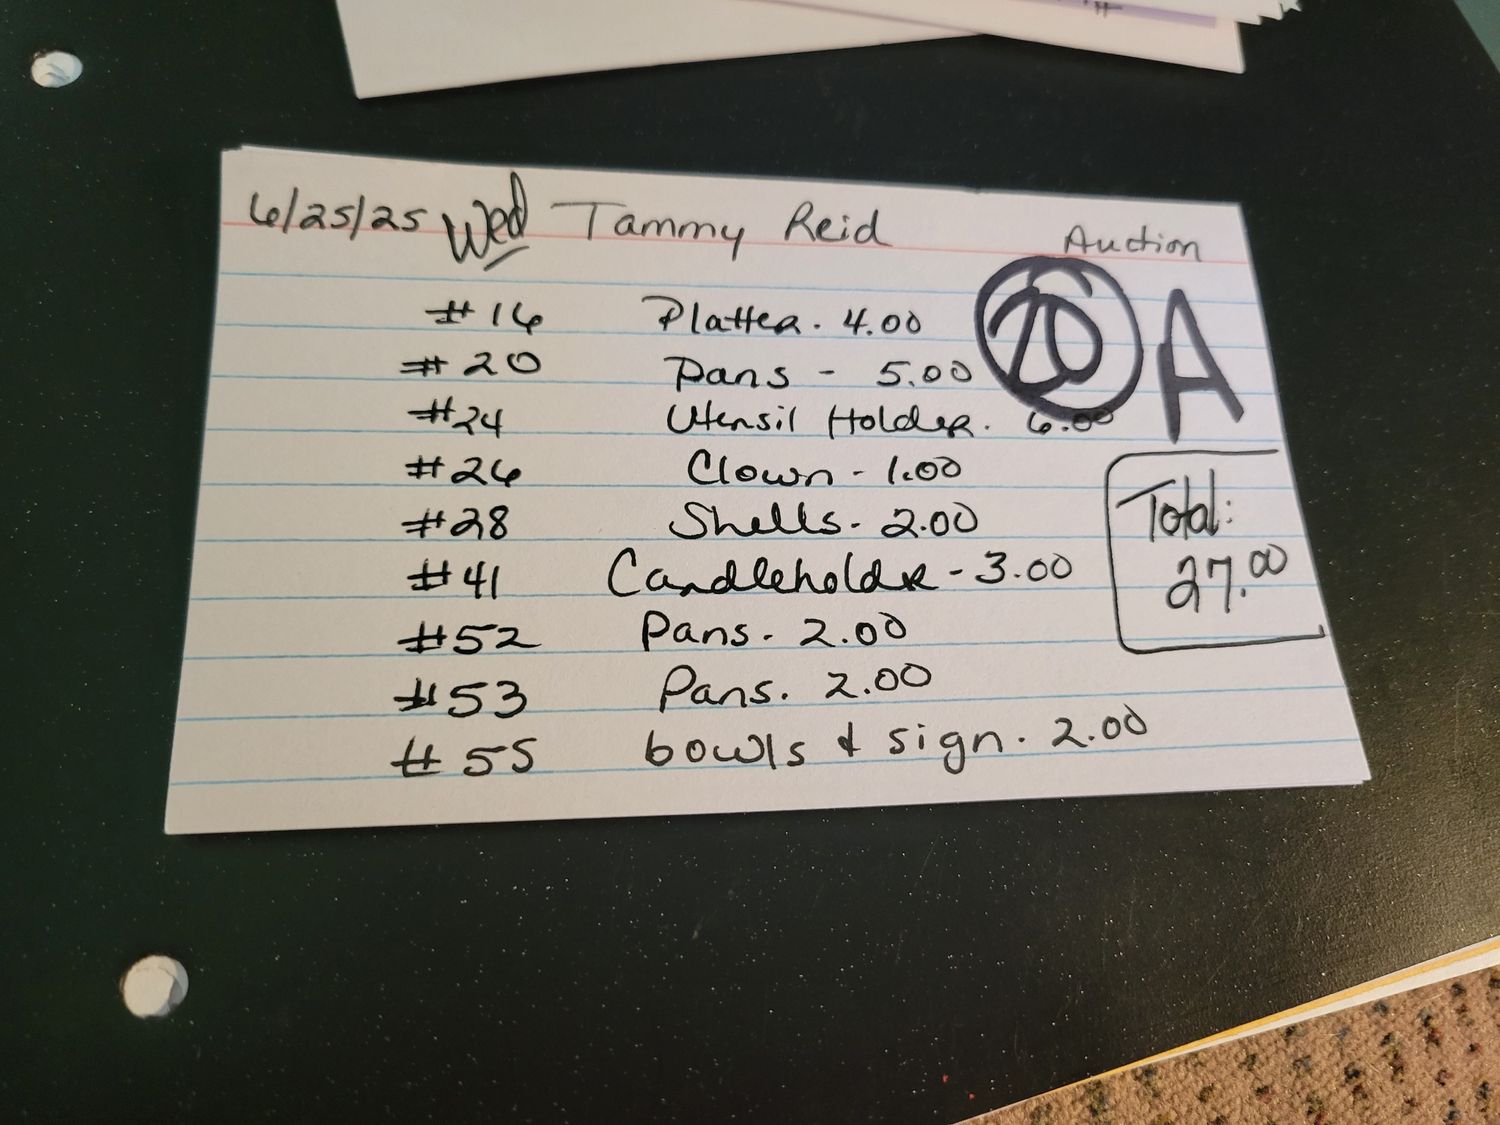 6/25/25 Wed Tammy Reid Auction
#16 Platter. 4.00
#20 Pans - 5.00
#24 Utensil Holder. 6.00
#26 Clown - 1.00
#28 Shells. 2.00
#41 Candleholder - 3.00
#52 Pans. 2.00
#53 Pans. 2.00
#55 bowls & sign. 2.00
A
Total:
27.00